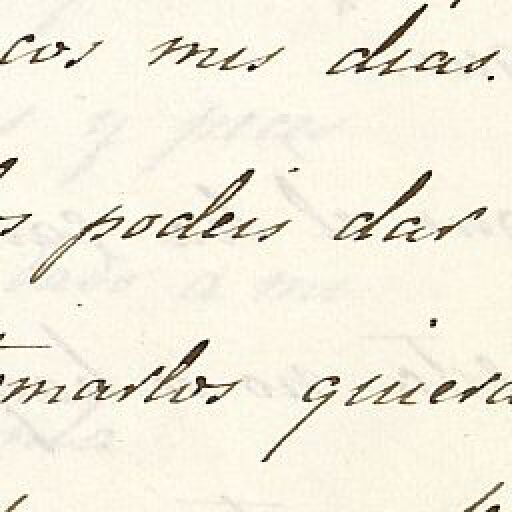 cos mis dias.
s podeis dar
marlos quiera